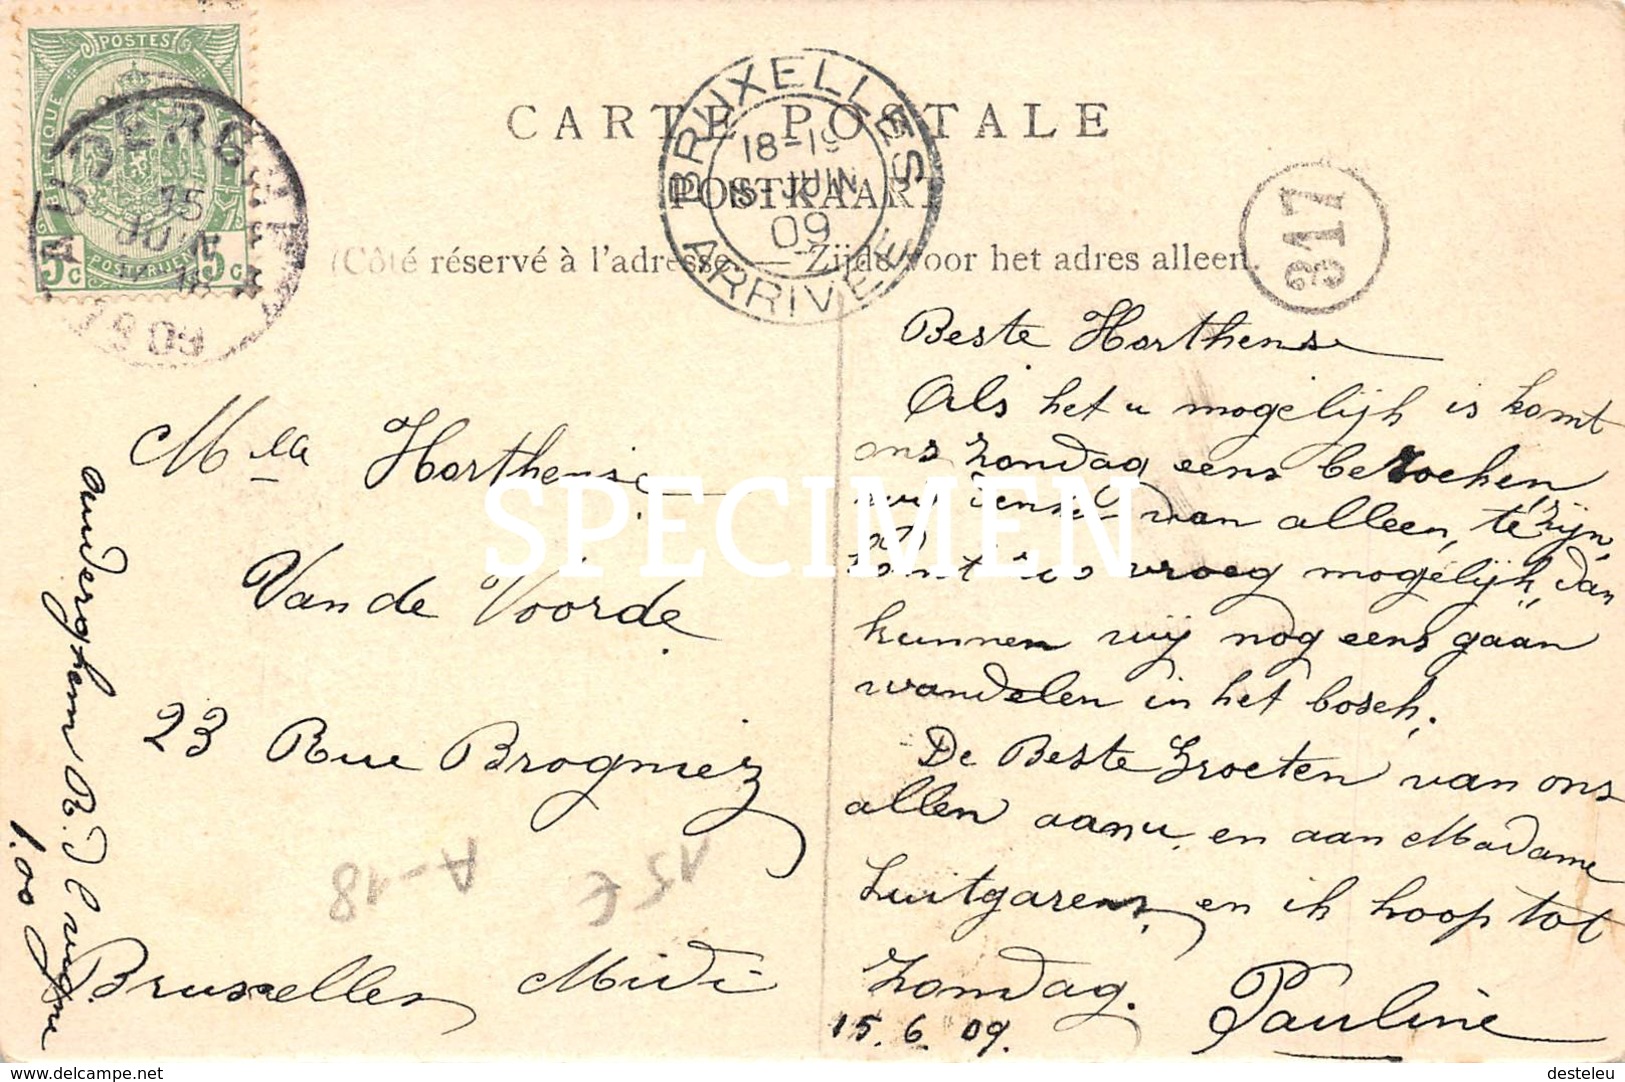 POSTES
BELGIQUE
5c POSTERIJEN 5c
AUDERGHEM
15
JUIN
18
1909
BRUXELLES
18-19
15 JUIN
09
ARRIVEE
317
CARTE POSTALE
POSTKAART
(Côté réservé à l'adresse. — Zijde voor het adres alleen.
Mlle Horthense
Van de Voorde
23 Rue Brogniez
Bruxelles Midi
Auderghem
A-18
15 €
Beste Horthense
Als het u mogelijk is komt
ons zondag eens bezoeken,
van alleen, te zijn,
komt zoo vroeg mogelijk, dan
kunnen wij nog eens gaan
wandelen in het bosch.
De Beste Groeten van ons
allen aan u en aan Madame
Luitgarens, en ik hoop tot
Zondag.
15.6.09. Pauline
SPECIMEN
delcampe.net
desteleu